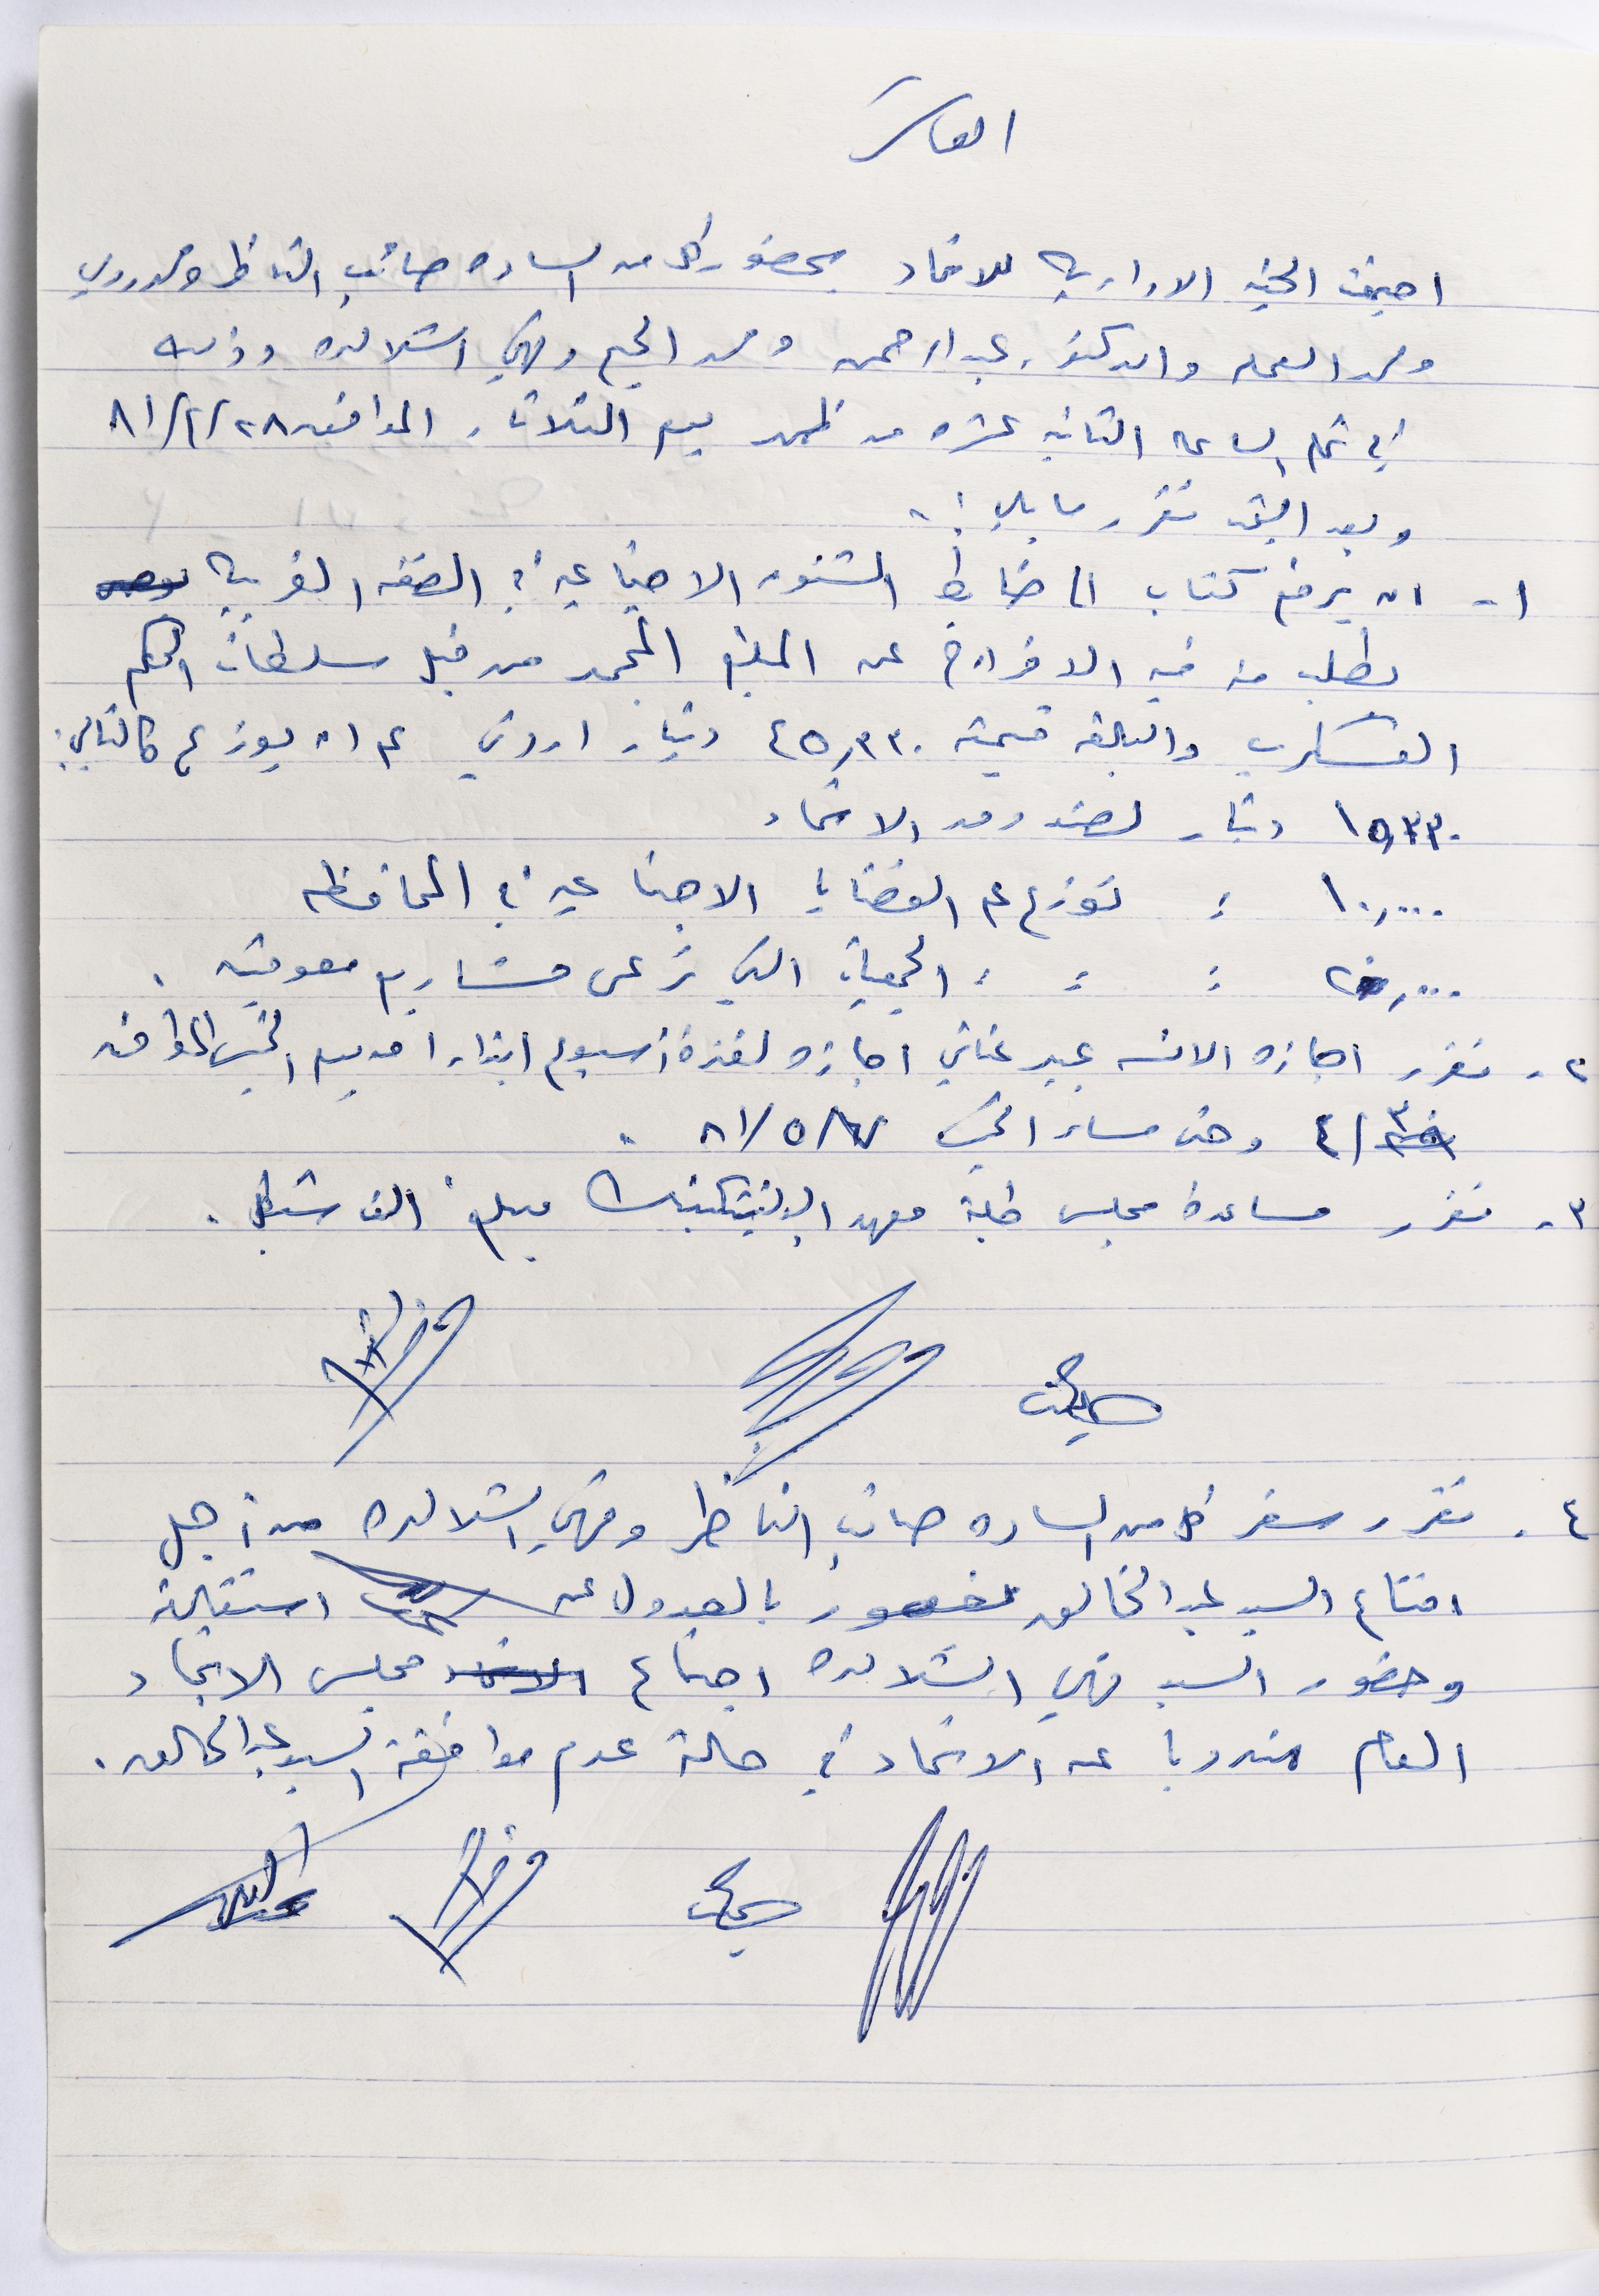 العاشر
اجتمعت الجنه الاداريه للاتحاد بحضور كل من الساده صائب الناظر ومحمد دودين
ومحمد العملة والدكتور عبد الرحمن ومحمد الحيح وفهمي الشلالده وذلك
في تمام الساعه الثانيه عشره من ظهر يوم الثلاثاء الموافق ٢٨/٤/٨١
وبعد البحث تقرر ما يلي :-
١- ان يرفع كتاب الى ضابط الشئون الاجتماعيه في الضفه الغربيه
يطلب منه فيه الافراج عن المبلغ المجمد من قبل سلطات الحكم
العسكري والبالغه قيمته ٤٥,٣٣٠ دينار اردني على ان يوزع كالتالي:
١٥,٣٣٠ دينار لصندوق الاتحاد
١٠,٠٠٠ : توزع على القضايا الاجتماعيه في المحافظه
٢٠,٠٠٠ : : : الجمعيات التي ترعى مشاريع معوقين .
٢- تقرر اجازه الانسه عبير غناني اجازه لفترة أسبوع ابتداءا من يوم الخميس الموافق
٣٠/٤ وحتى مساء الخميس ٧/٥/٨١ .
٣- تقرر مساعدة مجلس طلبة معهد البولتيكنيك مبلغ الف شيكل .
٤- تقرر سفر كل من الساده صائب الناظر وفهمي الشلالده من أجل
اقناع السيد عبد الخالق يغمور بالعدول عن استقالته
وحضور السيد فهمي الشلالده اجتماع مجلس الاتحاد
العام مندوبا عن الاتحاد في حالة عدم موافقة السيد عبد الخالق .